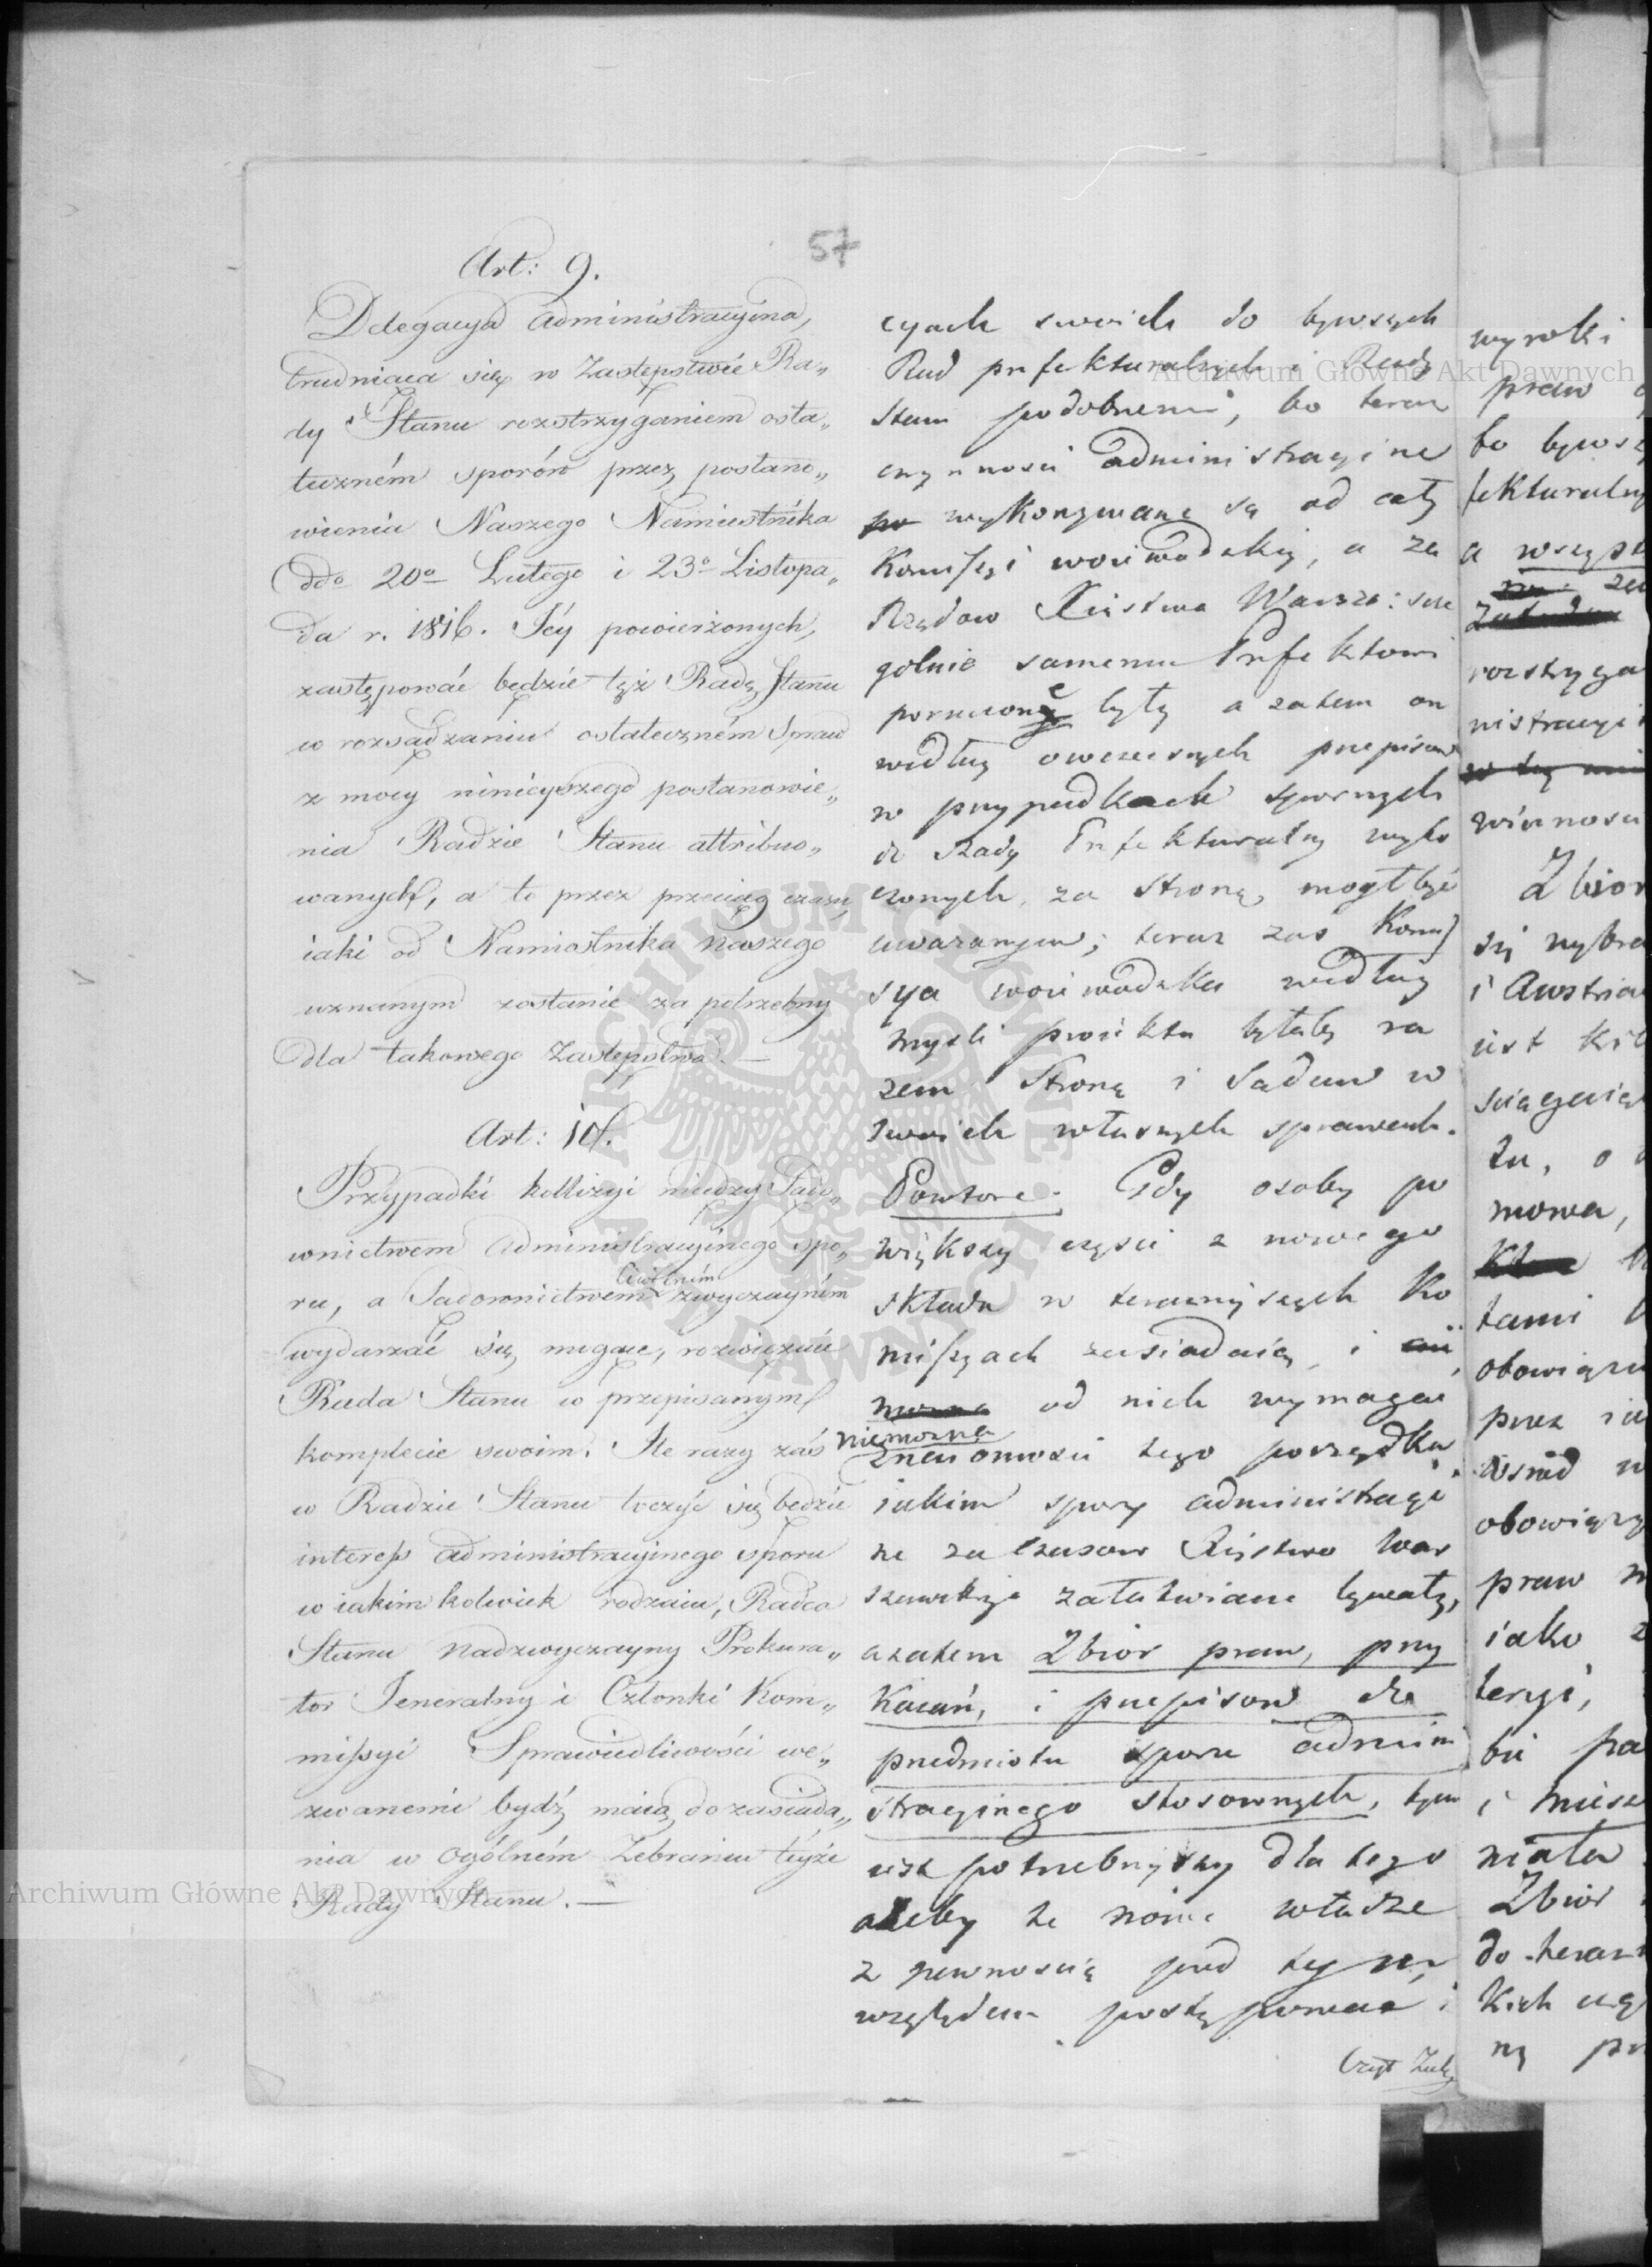 57
Art: 9.
Delegacya administracyina,
trudniąca się w Zastępstwie Ra„
dy Stanu rozstrzyganiem osta„
teczném sporów przez postano„
wienia Naszego Namiestnika
ddo 20o Lutego i 23o Listopa„
da r. 1816. Jéy powierzonych,
zastępować będzie też Radę Stanu
w rozsądzaniu ostateczném Spraw
z mocy ninieyszego postanowie„
nia Radzie Stanu attribuo„
wanych, a to przez przeciąg czasu,
iaki od Namiestnika naszego
uznanym zostanie za potrzebny
dla takowego Zastępstwa. —
Art: 10.
Przypadki kollizyi między Sądo„
wnictwem administracyinego spo„
ru, a Sądownictwem Cywilném zwyczayném
wydarzać się mogące, rozwiązuie
Rada Stanu w przepisanym
komplecie swoim. Ile razy zaś
w Radzie Stanu toczyć się będzie
interess administracyinego sporu
w iakim kolwiek rodzaiu, Radca
Stanu nadzwyczayny Prokura„
tor Jeneralny i Członki Kom„
missyi Sprawiedliwości we„
zwanemi bydź maią do zasiada„
nia w Ogólném Zebraniu téyże
Rady Stanu. —
cyach swoich do bywszych
Rad prefekturalnych i Rady
Stanu podobnemi, bo teraz
czynności administracyine
po wykonywane są od całey
Kommissyi woiewodzkiey, a za
Rządow Xięstwa Warsza: szcze
gólnie samemu Prefektowi
poruczone były a zatem on
według owczesnych przepisow
w przypadkach spornych
do Rady Prefekturalney wyto
czonych, za stronę, mogł być
uważanym; teraz zaś Kom
sya woiewodzka według
myśli proiektu byłaby ra
zem Stroną i Sądem w
swoich własnych sprawach.
Powtore. Gdy osoby po
większey części z nowego
składu w teraznieyszych Ko
missyach zasiadaią, i
niemożna od nich wymagać
znaiomości tego porządku,
iakim spory administracyi
ne za czasow Xięstwa War
szawskiego załatwiane bywały,
a zatem Zbior praw, przy
kazań, i przepisow do
przedmiotu sporu admini
stracyinego stosownych, tym
iest potrzebnieyszy dla tego
ażeby te nowe władze
z pewnością pod tym
względem postępować i
wyroki
praw
bo bywszy
fekturalny
a wszyst
rozstrzyga
nistracyi
winnosci
Zbior
się wybra
i Austria
iest kil
sciągaią
tu, o
mowa,
tami
obowiązu
przez
wsrod
obowiązu
praw
iako z
teryi,
bu
i miesz
miała
Zbior
do teraz
kich
ny
Archiwum Główne Akt Dawnych
Archiwum Główne Akt Dawnych
ARCHIWUM GŁÓWNE AKT DAWNYCH